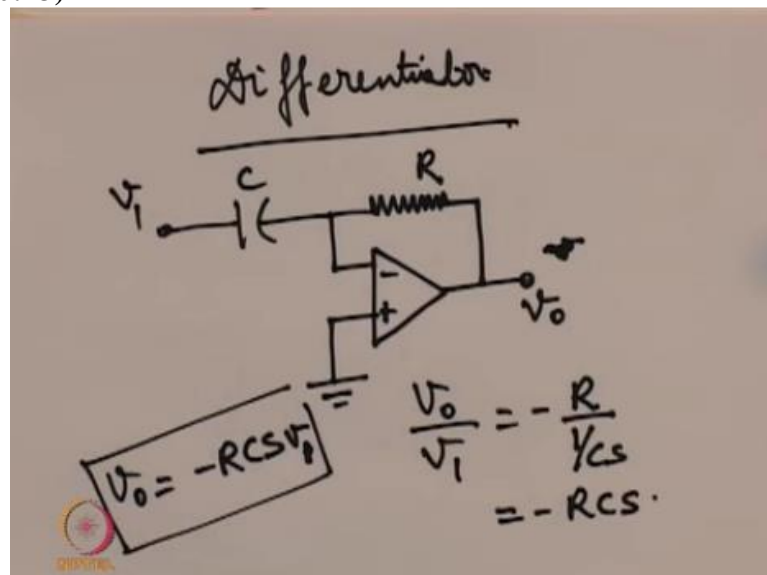 Differentiator
V₁
C
R
-
+
V₀
V₀/V₁ = - R/(1/CS)
= - RCS.
V₀ = -RCSV₁